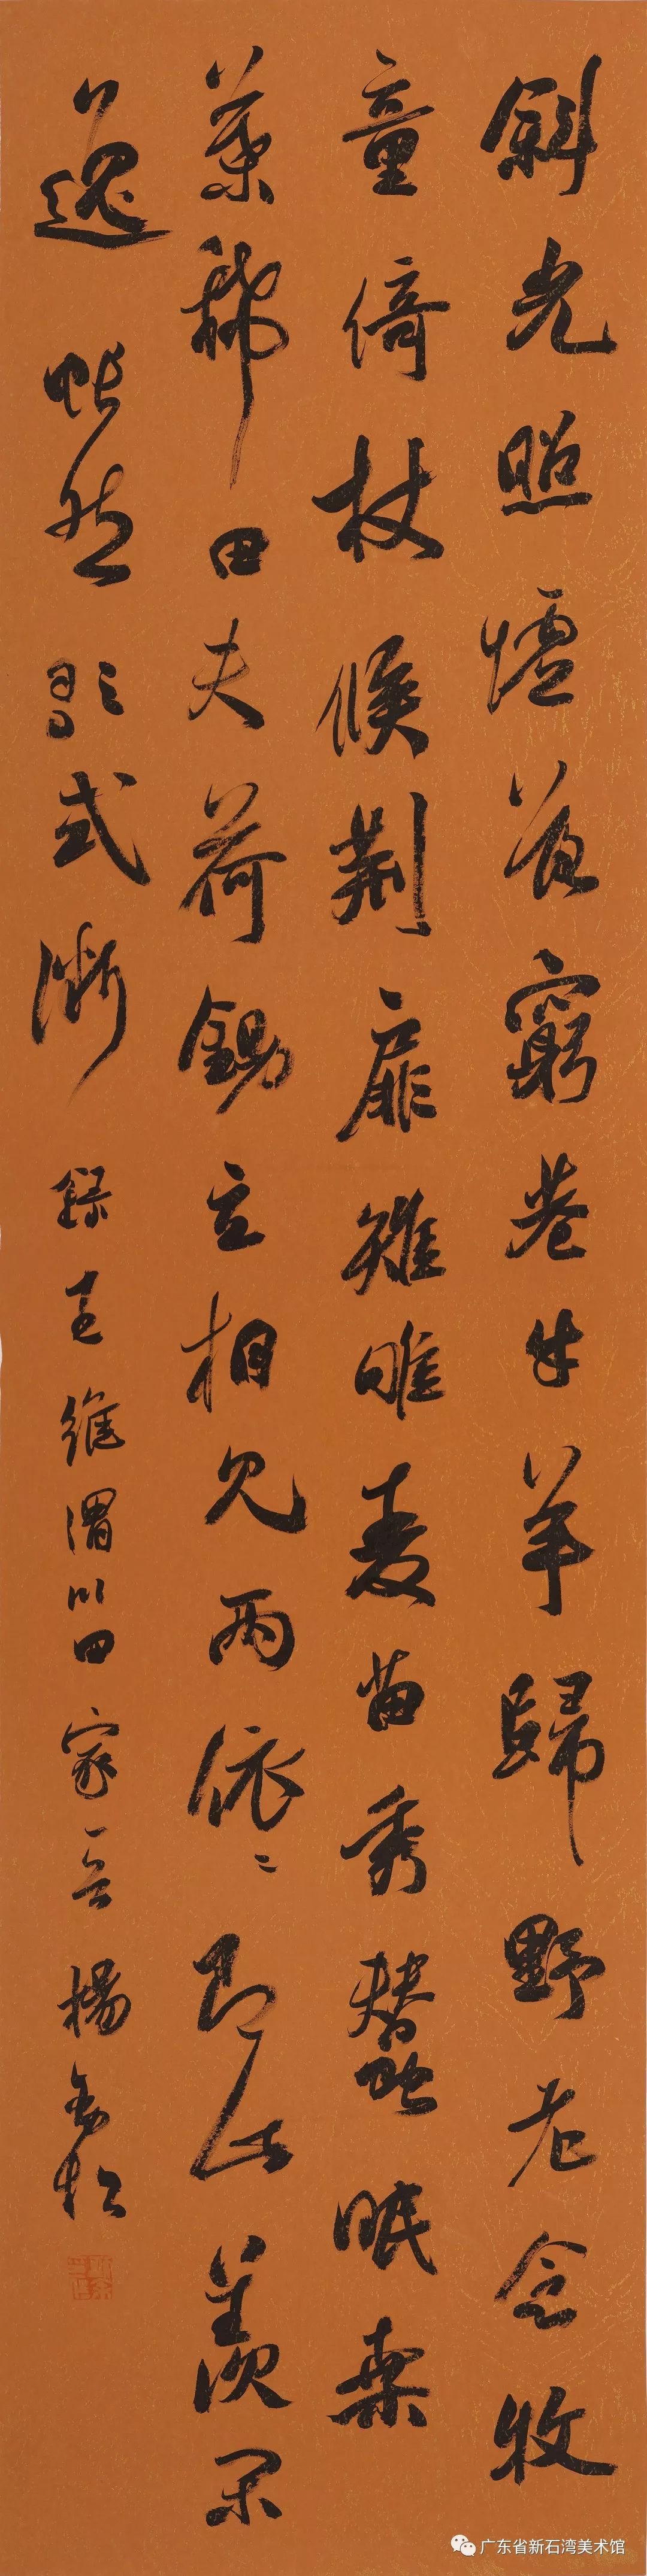 斜光照墟落窮巷牛羊歸野老念牧
童倚杖候荆扉雉雊麦苗秀蠶眠桑
葉稀田夫荷鋤立相見兩依〻即此羡闲
逸悵然歌式微 録王維渭川田家一首 楊
广东省新石湾美术馆